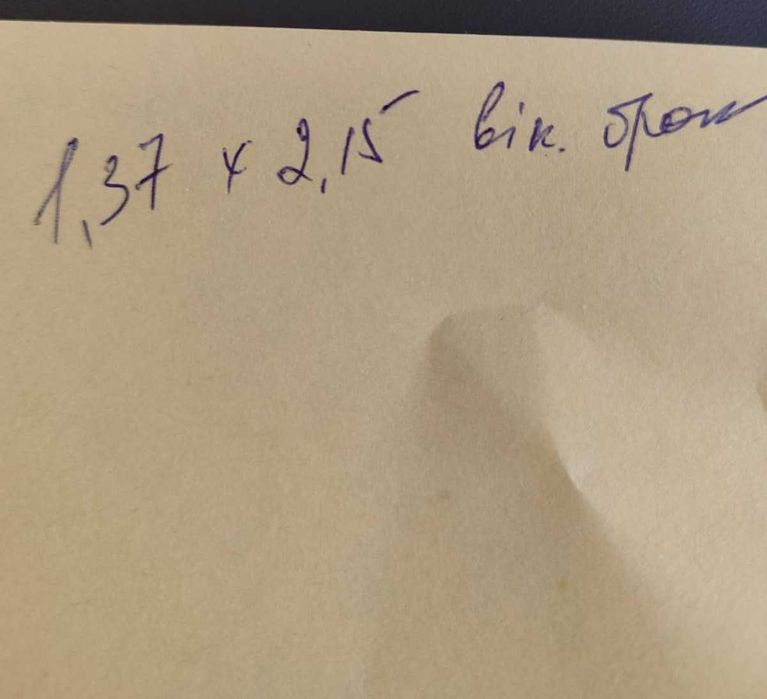 1,37 x 2,15 вік.